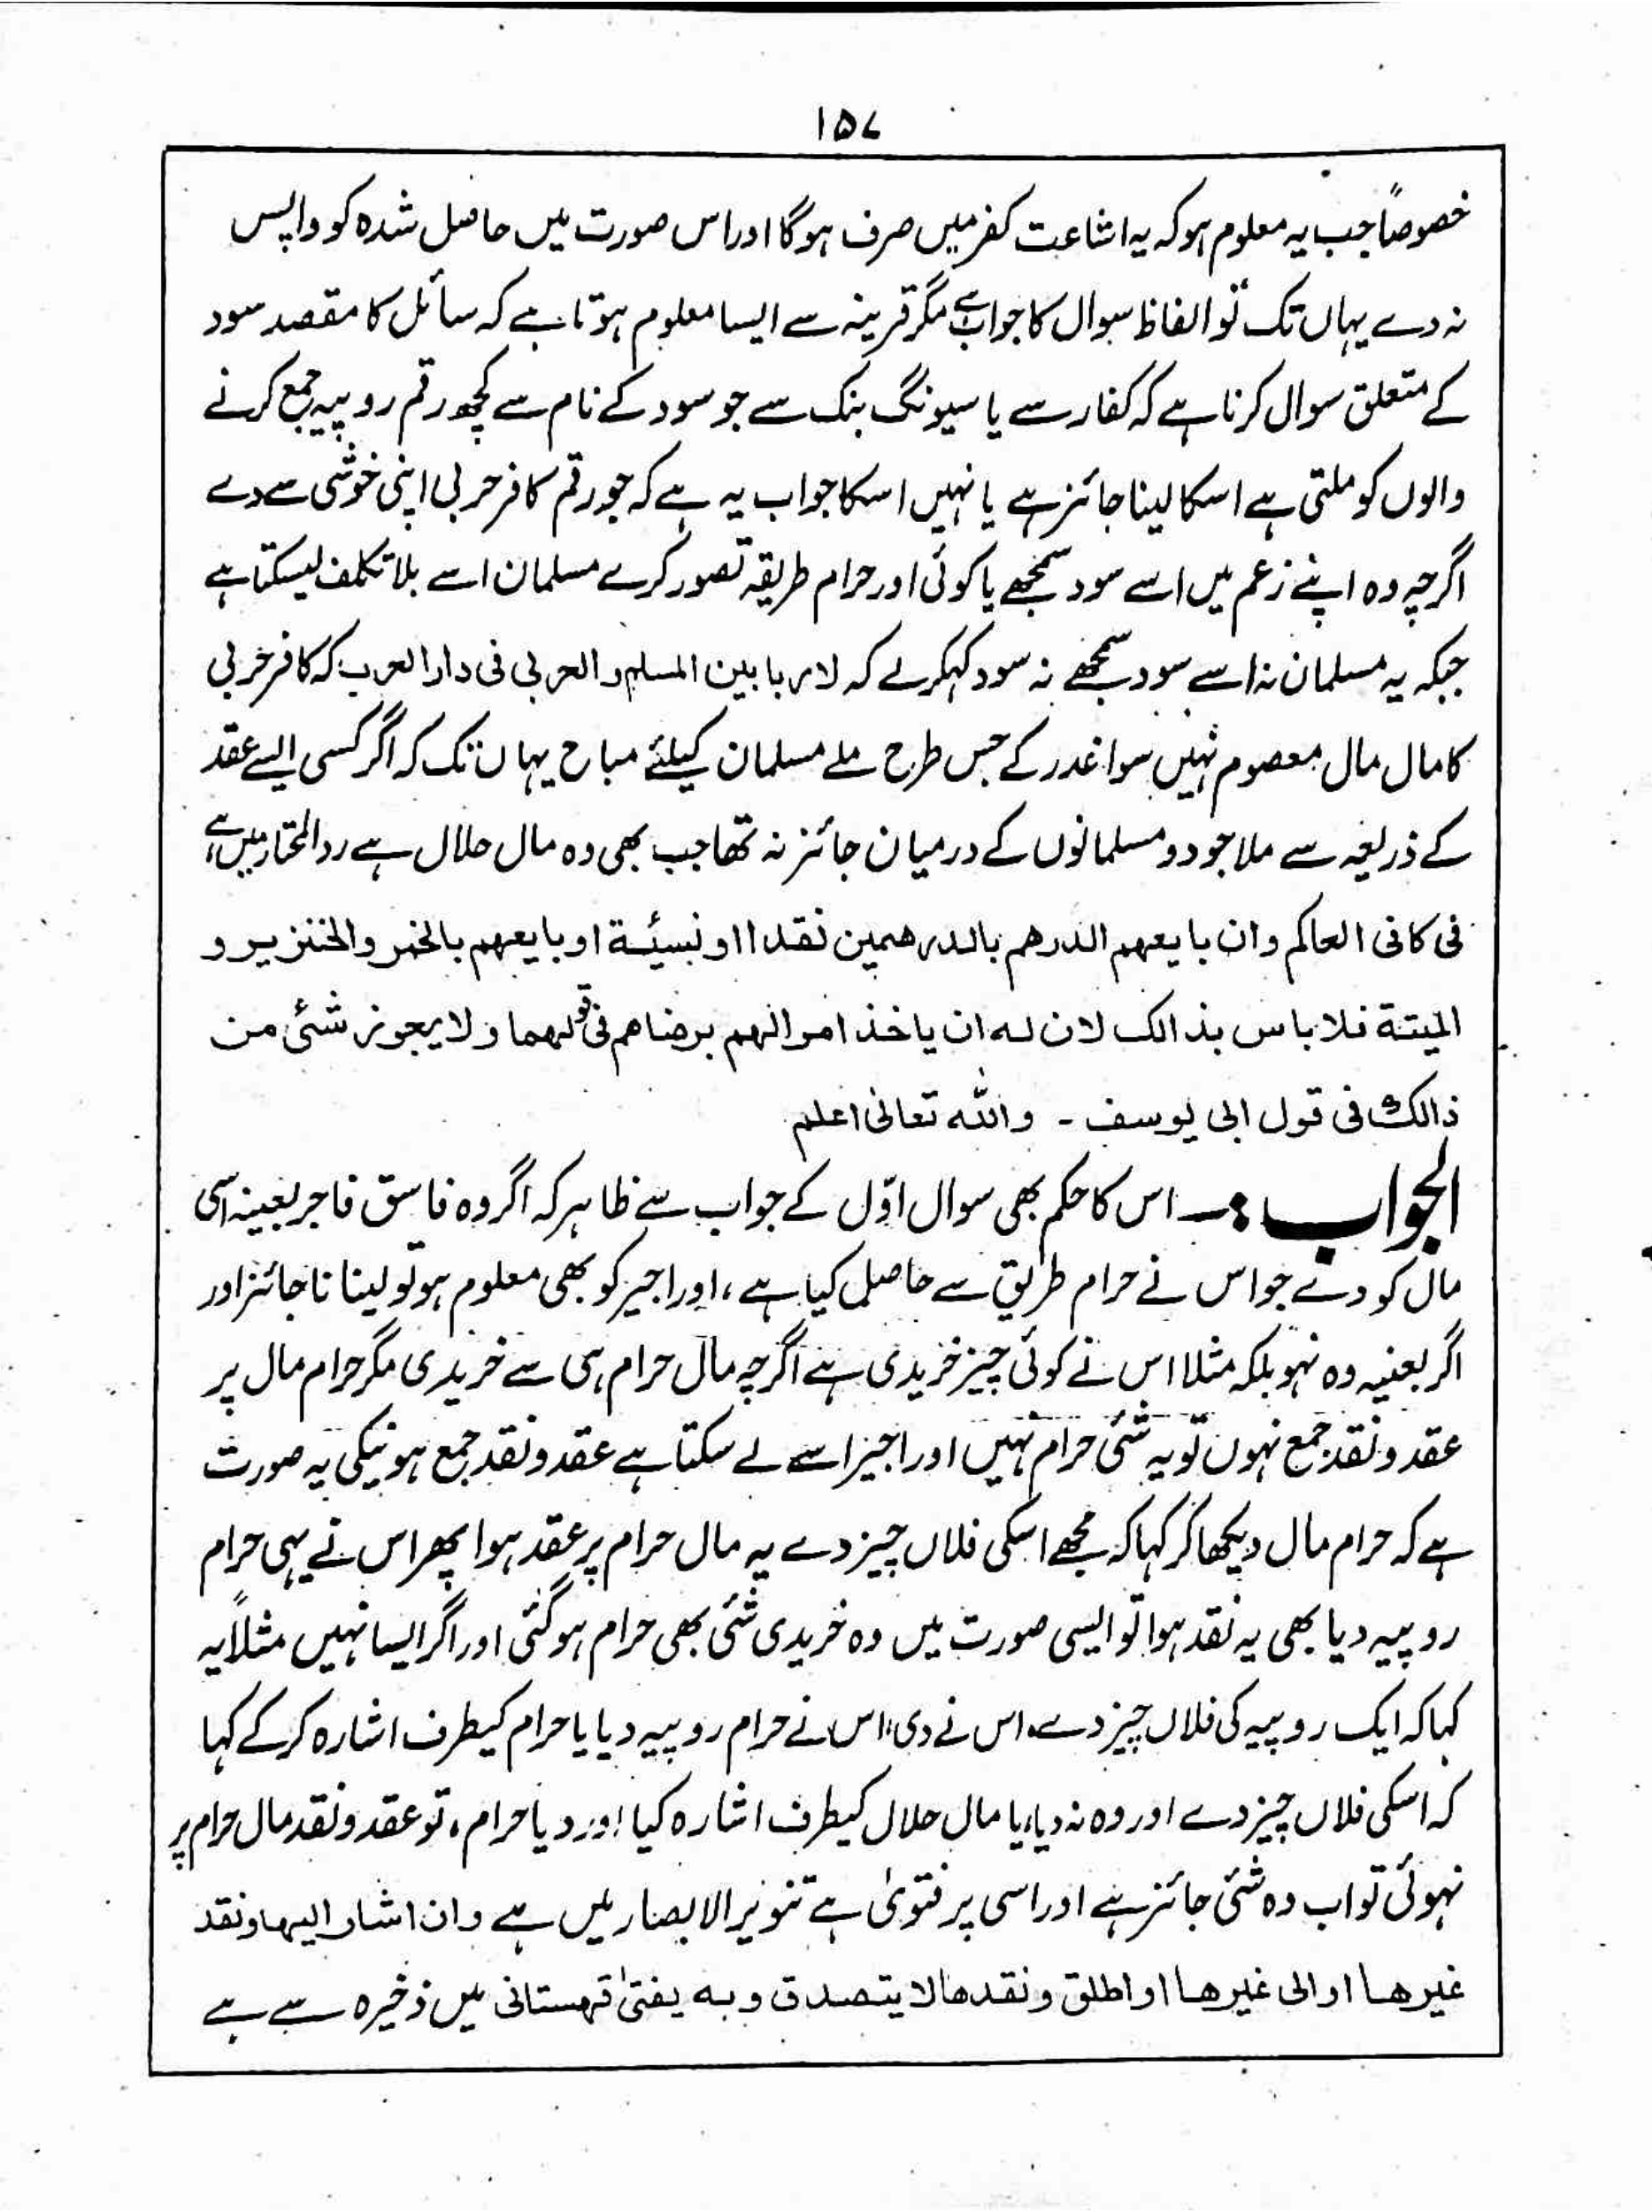 ۱۵۷
خصوصاً جب یہ معلوم ہو کہ یہ اشاعت کفر میں صرف ہوگا اور اس صورت میں حاصل شدہ کو واپس
نہ دے یہاں تک تو الفاظ سوال کا جواب ہے مگر قرینہ سے ایسا معلوم ہوتا ہے کہ سائل کا مقصد سود
کے متعلق سوال کرنا ہے کہ کفار سے یا سیونگ بنک سے جو سود کے نام سے کچھ رقم روپیہ جمع کرنے
والوں کو ملتی ہے اسکا لینا جائز ہے یا نہیں اسکا جواب یہ ہے کہ جو رقم کافر حربی اپنی خوشی سے دے
اگرچہ وہ اپنے زعم میں اسے سود سمجھے یا کوئی اور حرام طریقہ تصور کرے مسلمان اسے بلا تکلف لیسکتا ہے
جبکہ یہ مسلمان نہ اسے سود سمجھے نہ سود کہکر لے کہ لا ربا بین المسلم و الحربی فی دار الحرب کہ کافر حربی
کا مال مال معصوم نہیں سوا غدر کے جس طرح ملے مسلمان کیلئے مباح یہاں تک کہ اگر کسی ایسے عقد
کے ذریعہ سے ملا جو دو مسلمانوں کے درمیان جائز نہ تھا جب بھی وہ مال حلال ہے ردالمحتار میں ہے
فی کافی الحاکم وان بایعهم الدرهم بالدرهمین نقدا او نسیئة او بایعهم بالخمر والخنزیر و
المیتة فلا باس بذالک لان له ان یاخذ اموالهم برضاهم فی قولهما و لا یجوز شئی من
ذالک فی قول ابی یوسف ۔ واللہ تعالیٰ اعلم
الجواب :۔ اس کا حکم بھی سوال اوّل کے جواب سے ظاہر کہ اگر وہ فاسق فاجر بعینہ اسی
مال کو دے جو اس نے حرام طریق سے حاصل کیا ہے ، اور اجیر کو بھی معلوم ہو تو لینا ناجائز اور
اگر بعنیہ وہ نہو بلکہ مثلا اس نے کوئی چیز خریدی ہے اگرچہ مال حرام ہی سے خریدی مگر حرام مال پر
عقد و نقد جمع نہوں تو یہ شئی حرام نہیں اور اجیر اسے لے سکتا ہے عقد و نقد جمع ہونیکی یہ صورت
ہے کہ حرام مال دیکھا کر کہا کہ مجھے اسکی فلاں چیز دے یہ مال حرام پر عقد ہوا پھر اس نے یہی حرام
روپیہ دیا بھی یہ نقد ہوا تو ایسی صورت میں وہ خریدی شئی بھی حرام ہوگئی اور اگر ایسا نہیں مثلاً یہ
کہا کہ ایک روپیہ کی فلاں چیز دے، اس نے دی، اس نے حرام روپیہ دیا یا حرام کیطرف اشارہ کرکے کہا
کہ اسکی فلاں چیز دے اور وہ نہ دیا، یا مال حلال کیطرف اشارہ کیا اور دیا حرام ، تو عقد و نقد مال حرام پر
نہوئی تو اب وہ شئی جائز ہے اور اسی پر فتویٰ ہے تنویر الابصار میں ہے وان اشار الیها و نقد
غیرها او الی غیرها او اطلق و نقدها لا یتصدق و به یفتیٰ قہستانی میں ذخیرہ سے ہے